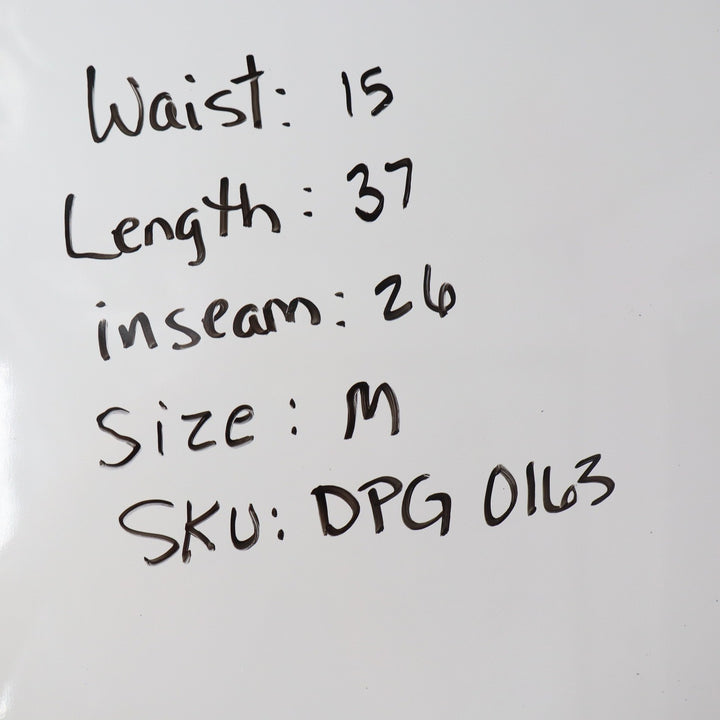 Waist: 15
Length: 37
inseam: 26
Size: M
SKU: DPG 0163